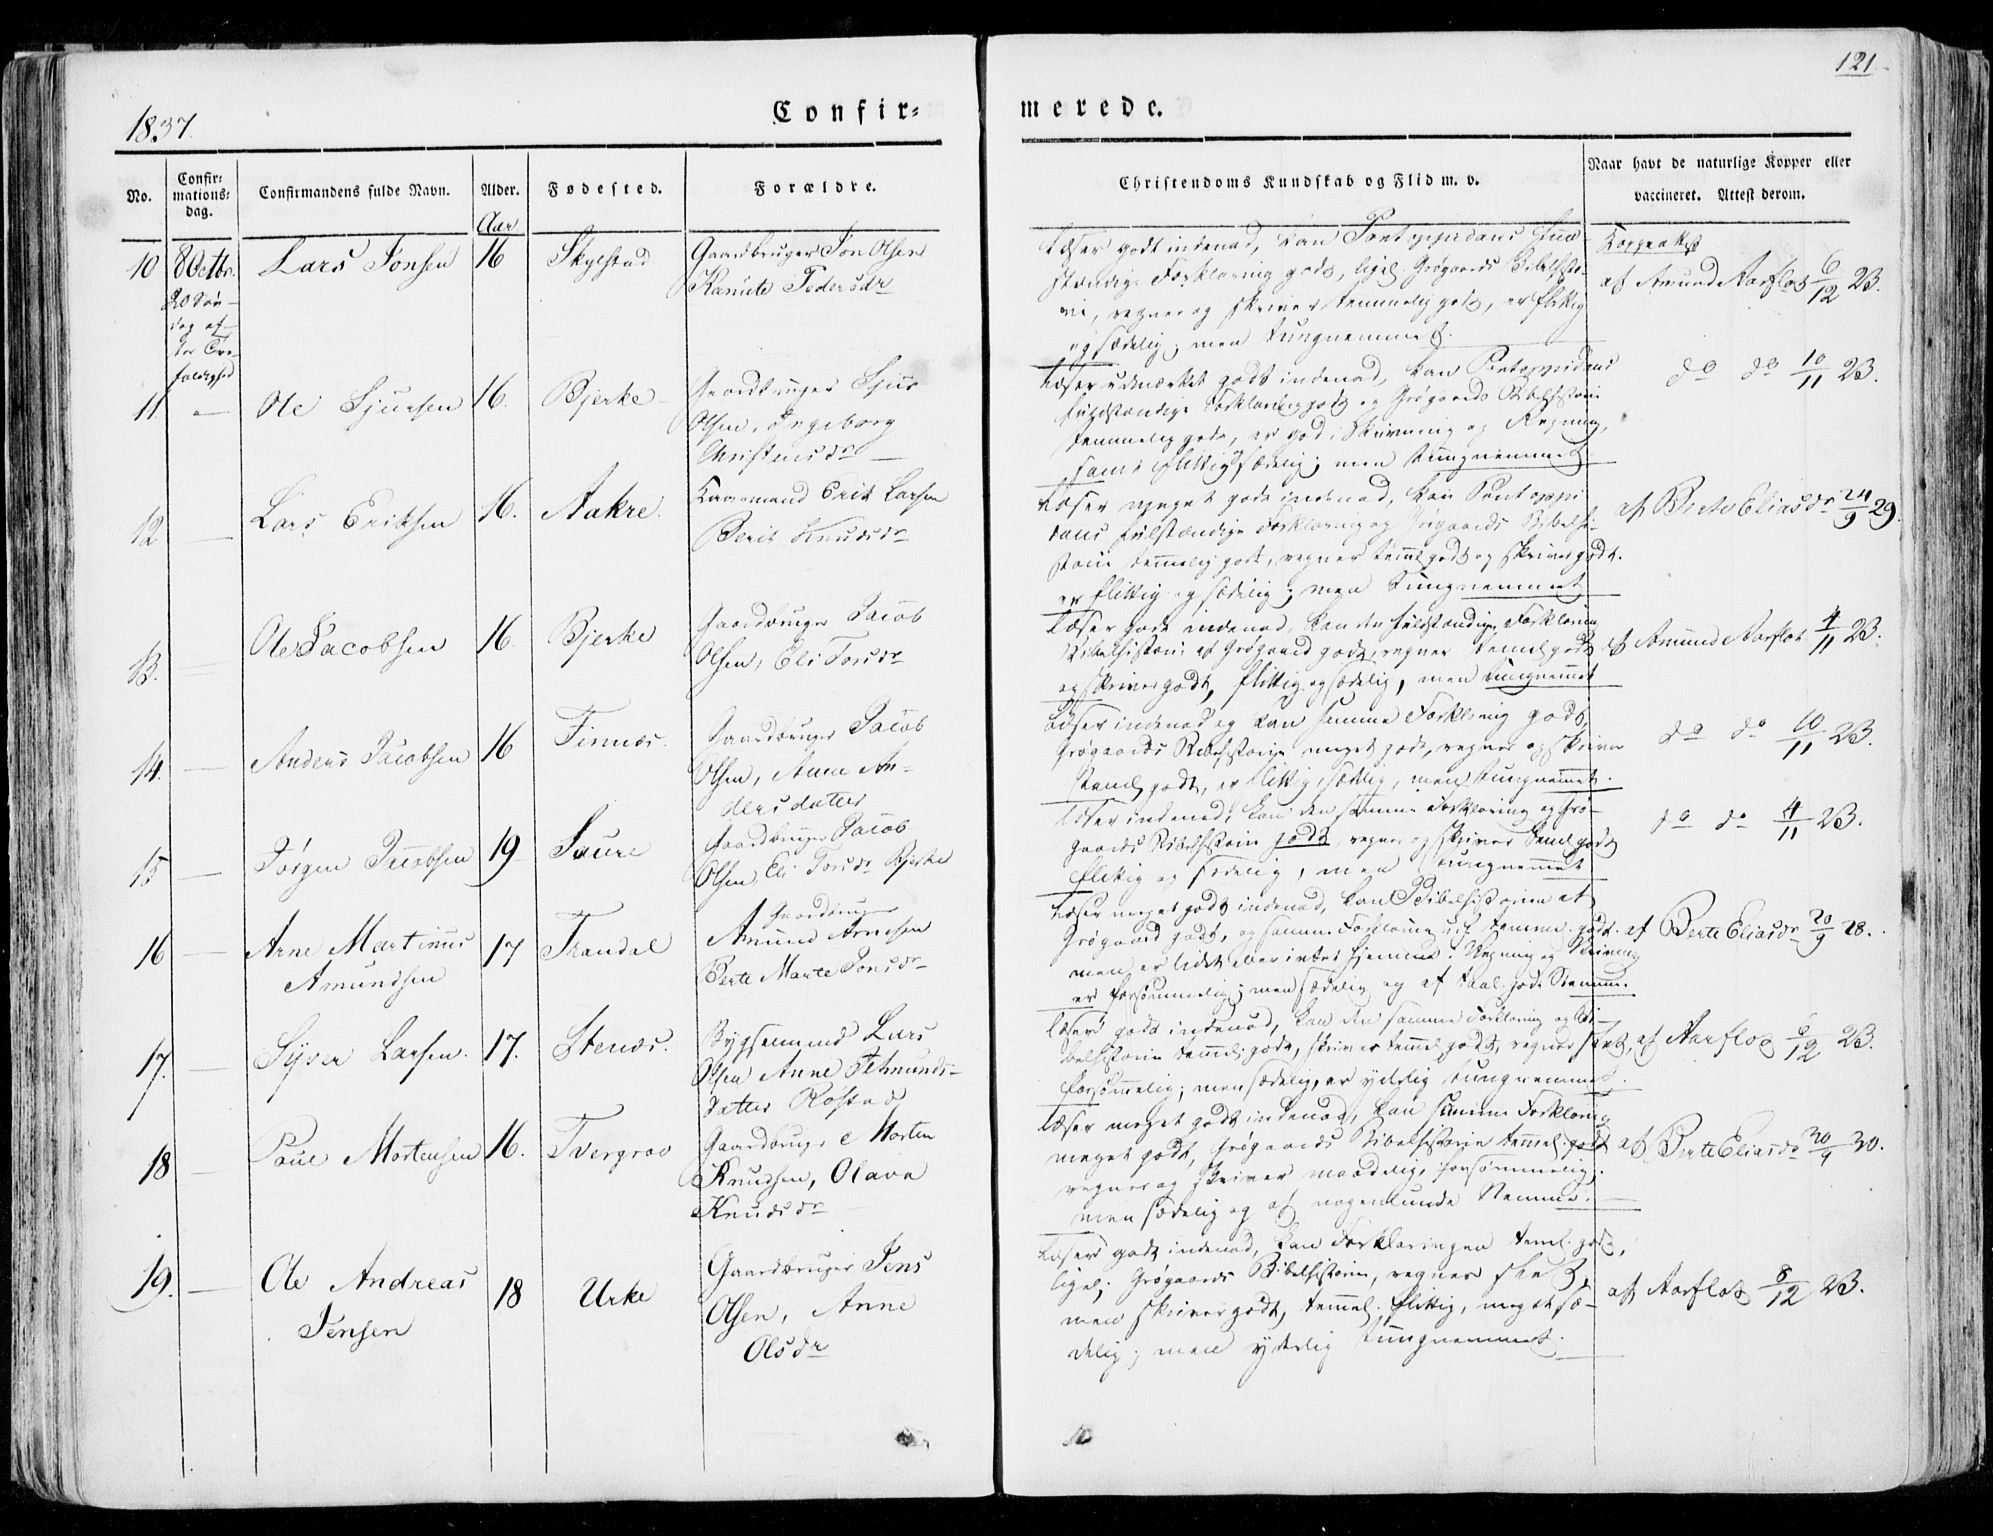 121
1837.
Confir=
merede.
No.
Confir=
mations=
dag.
Confirmandens fulde Navn.
Alder.
Fødested.
Forældre.
Christendoms Kundskab og Flid m. v.
Naar havt de naturlige Kopper eller
vaccineret. Attest derom.
Aar
10
8 Octbr.
20 Søn-
dag ef-
ter Tre-
foldighed
Lars Jonsen
16
Skylstad
Gaardbruger Jon Olsen
Ranute Pedersdr
Læser godt indenad, kan Pontoppidans fuld-
stændige Forklaring godt, ligel. Grøgaards Bibelhisto-
rie, regner og skriver temmelig godt, er flittig
og sædelig; men tungnemmet.
Koppeattest
af Amund Aarflot 6/12 23.
11.
Ole Sjursen
16.
Bjerke
Gaardbruger Sjur
Olsen, Ingeborg
Christensdr
Læser udmærket godt indenad, kan Pontoppidans
fuldstændige Forklaring godt og Grøgaards Bibelhistorie
temmelig godt, er god i Skrivning og Regning,
samt flittig og sædelig; men tungnemmet.
do do 10/11 23.
12
Lars Eriksen
16.
Aakre.
Erik Larsen
Berit Knudsdr
Læser meget godt indenad, kan Pontoppi-
dans fulstændige Forklaring og Grøgaards Bibelhi-
storie temmelig godt, regner teml. godt og skriver godt.
er flittig og sædelig; men tungnemmet
af Berte Eliasdr 24/9 29.
13.
Ole Jacobsen
16.
Bjerke
Gaardbruger Jacob
Olsen, Eli Torsdr
Læser godt indenad, kan den fuldstændige Forklaring
Bibelhistorie af Grøgaard godt, regner temel. godt
og skriver godt, flittig og sædelig, men tungnemet
af Amund Aarflot 4/11 23.
14.
Anders Jacobsen
16
Finnes.
Gaardbruger Jacob
Olsen, Anne An-
dersdatter
Læser indenad og kan samme Forklaring godt,
Grøgaards Bibelhistorie meget godt, regner og skriver
temel. godt, er flittig, sædelig, men tungnemet.
do do 10/11 23.
15
Jørgen Jacobsen
19
Saure
Gaardbruger Jacob
Olsen, Eli Torsdr Bjerke
Læser indenad, kan den samme Forklaring og Grø-
gaards Bibelhistorie godt, regner og skriver temel. godt
flittig og sædelig, men tungnemet
do do 4/11 23.
16
Arne Martinus
Amundsen
17
Trandal
Gaardbruger
Amund Arnesen
Berte Marte Jonsdr
Læser meget godt indenad, kan Bibelhistorien af
Grøgaard godt, og samme Forklaring temme. godt.
men er lidet eller intet hjemme i Regning og Skrivning
er forsømmelig; men sædelig og af taal. godt Nemme.
af Berte Eliasdr 20/9 28.
17.
Syver Larsen.
17.
Stenes.
Bygselmand Lars
Olsen Anne Amunds-
datter Røstad
Læser godt indenad, kan den samme Forklaring og Bi-
belhistorie temmeli godt, skriver temmel godt, regner slet,
forsømelig; men sædelig, er yderlig tungnemmet.
af Aarflot 6/12 23.
18
Paul Mortensen
16.
Tvergrov
Gaardbruge Morten
Knudsen, Olava
Knudsdr
Læser meget godt indenad, kan samme Forklaring
meget godt, Grøgaards Bibelhistorie temel. godt
regner og skriver maadelig, forsømmelig;
men sædelig og af nogenlunde Nemme.
af Berte Eliasdr 20/9 30.
19.
Ole Andreas
Jensen
18
Urke
Gaardbruger Jens
Olsen, Anne
Olsdr
Læser godt indenad, kan Forklaringen teml. godt,
ligel; Grøgaards Bibelhistorie, regner slet,
men skriver godt, temmel. flittig, meget sæ-
delig; men yderlig tungnemmet.
af Aarflot 8/12 23.